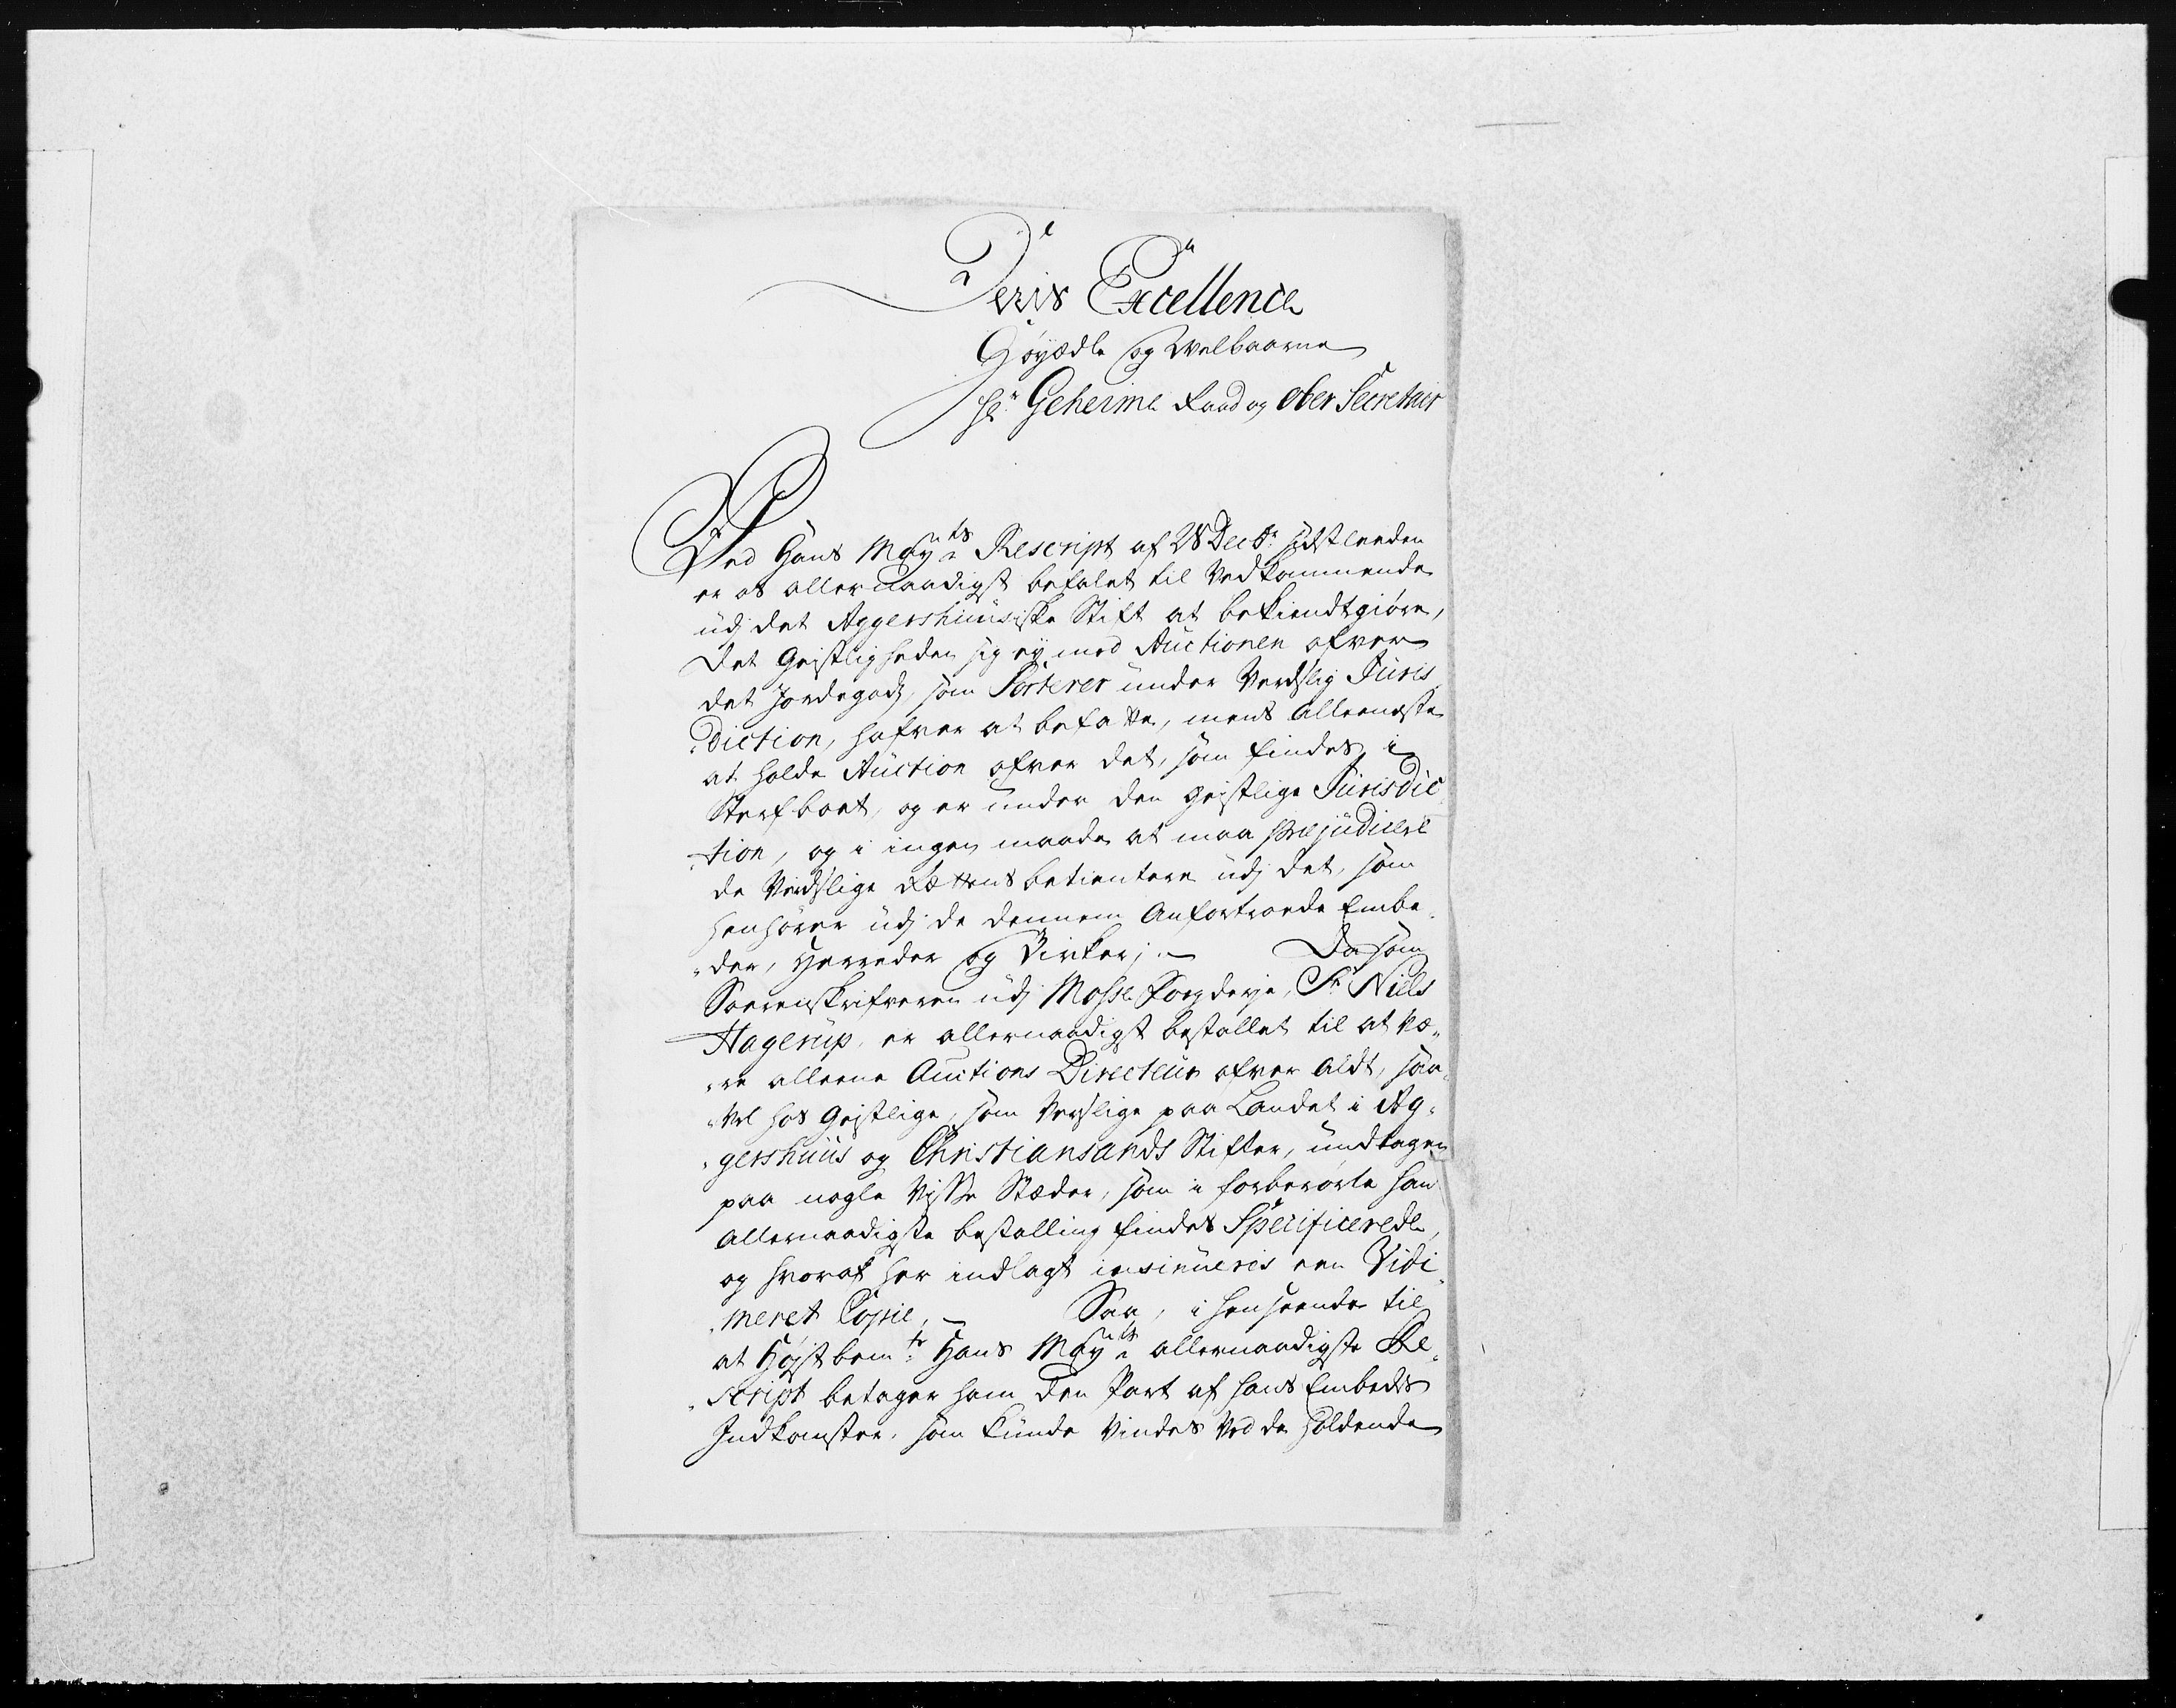 Deris Excellence
Høyædle og Welbaarne
Hr Geheime Raad og Ober Secretair
Ved Hans Mayts Rescript af 28 Decbr sidstleeden
er os allernaadigst befalet til Vedkommende
udj det Aggershuusiske Stift at bekiendtgiøre,
Det Geistligheden sig ey med Auctionen ofver
det Jordegodz, som Sorterer under Verdslig Juris
diction, hafver at befatte, mens alleeneste
at holde Auction ofver det, som findes i
Sterfboet, og er under den geistlige Jurisdic
tion, og i ingen maade at maa præjudicere
de Verdslige Rættens betientere udj det, som
henhører udj de dennem Anfortroede Embe
der, Herreder og Birker; Da som
Sorenskrifveren udj Mosse Fogderje, Sr Niels
Hagerup, er allernaadigst bestallet til at væ
re alleene Auctions Directeur ofver aldt, saa
vel hos Geistlige, som Verslige paa Landet i Ag
gershuus og Christiansands Stifter, undtagen
paa nogle Visse Stæder, som i forberørte hans
allernaadigste bestalling findes Specificerede,
og hvoraf her indlagt insinueris een Vidi
meret Copie, Saa, i henseende til
at Højstbemte Hans Mayts allernaadigste Re
script betager ham den Part af hans Embeds
Indkomster, som kunde vindes ved de holdende